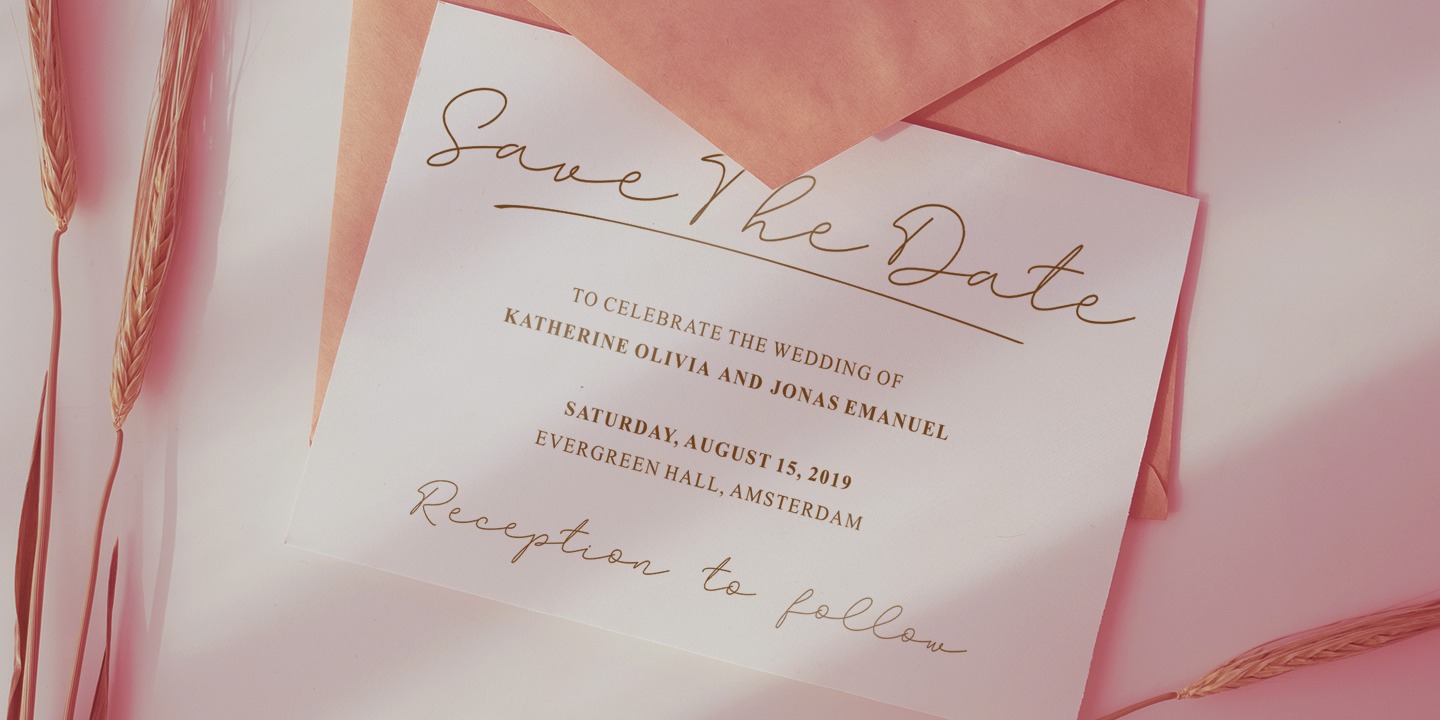 Save The Date
TO CELEBRATE THE WEDDING OF
KATHERINE OLIVIA AND JONAS EMANUEL
SATURDAY, AUGUST 15, 2019
EVERGREEN HALL, AMSTERDAM
Reception to follow